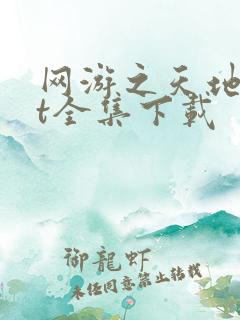 网游之天地
t全集下载
御龍虾
未经同意禁止转载